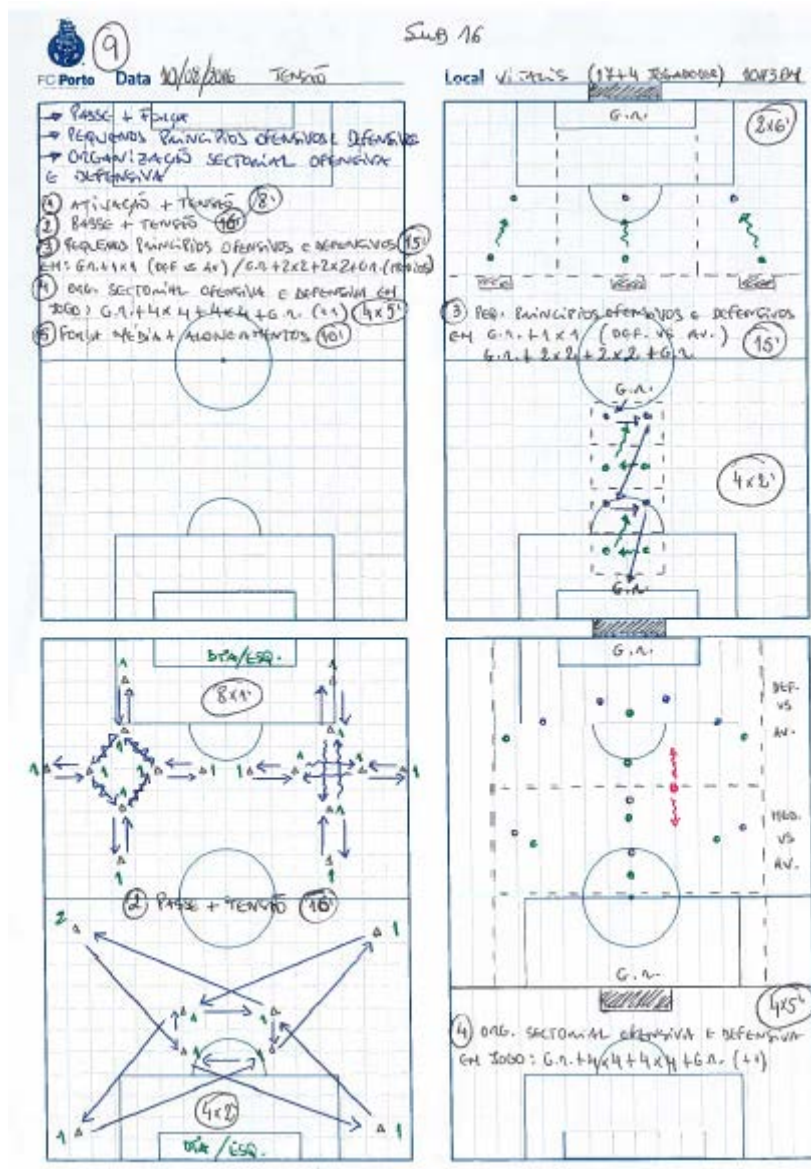 SUB 16
9
FC Porto Data 20/08/2016 TENSÃO
Local VITALIS (17+4 JOGADORES)
→ PASSE + FORÇA
→ PEQUENOS PRINCÍPIOS OFENSIVOS E DEFENSIVOS
→ ORGANIZAÇÃO SECTORIAL OFENSIVA
E DEFENSIVA
1 ATIVAÇÃO + TENSÃO 8'
2 PASSE + TENSÃO 16'
3 PEQUENOS PRINCÍPIOS OFENSIVOS E DEFENSIVOS 15'
EM: G.R.+1x1 (DEF VS AV) / G.R+2x2+2x2+G.R.
4 ORG. SECTORIAL OFENSIVA E DEFENSIVA EM
JOGO: G.R.+4x4+4x4+G.R. (+1) 4x5'
5 FORÇA MÉDIA + ALONGAMENTOS 10'
G.R.
2x6'
3 PEQ. PRINCÍPIOS OFENSIVOS E DEFENSIVOS
EM G.R.+1x1 (DEF. VS AV.)
G.R.+2x2+2x2+G.R.
15'
G.R.
4x2'
G.R.
DTA/ESQ.
8x1'
1
1
1
1
1
1
1
1
1
1
1
1
1
1
2 PASSE + TENSÃO 16'
2
1
1
1
1
1
4x2'
1
1
DTA/ESQ.
G.R.
DEF.
VS
AV.
MED.
VS
AV.
G.R.
4x5'
4 ORG. SECTORIAL OFENSIVA E DEFENSIVA
EM JOGO: G.R.+4x4+4x4+G.R. (+1)